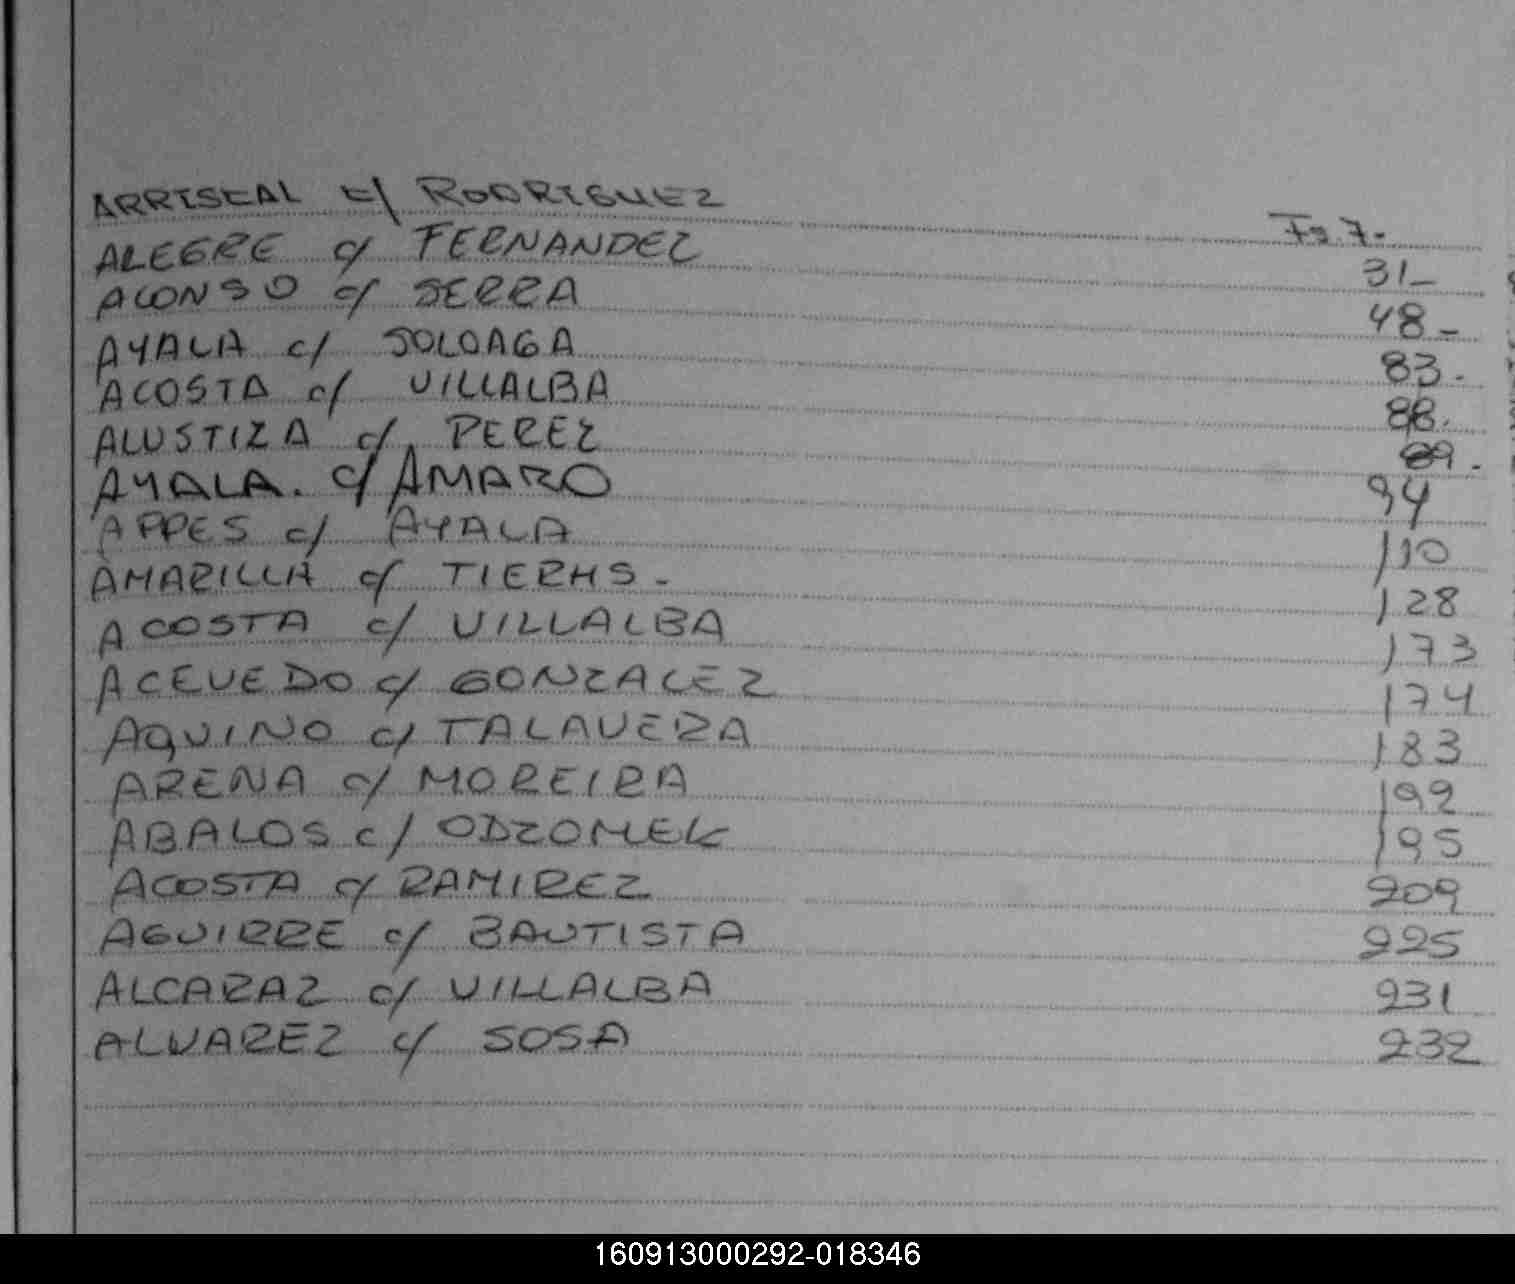 ARRISCAL c/ RODRIGUEZ Fs. 7.-
ALEGRE c/ FERNANDEZ 31_
ALONSO c/ SERRA 48_
AYALA c/ SOLOAGA 83.
ACOSTA c/ VILLALBA 88.
ALUSTIZA c/ PEREZ 89.
AYALA. c/ AMARO 94
APPES c/ AYALA 110
AMARILLA c/ TIERHS. 128
ACOSTA c/ VILLALBA 173
ACEVEDO c/ GONZALEZ 174
AQUINO c/ TALAVERA 183
ARENA c/ MOREIRA 192
ABALOS c/ ODZOMEK 195
ACOSTA c/ RAMIREZ 209
AGUIRRE c/ BAUTISTA 225
ALCARAZ c/ VILLALBA 231
ALVAREZ c/ SOSA 232
160913000292-018346